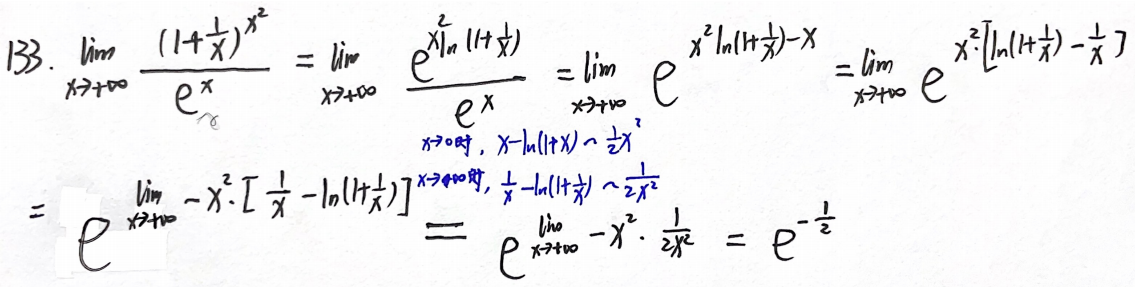 133. lim_{x→+∞} (1+1/x)^{x²} / e^x = lim_{x→+∞} e^{x² ln(1+1/x)} / e^x = lim_{x→+∞} e^{x² ln(1+1/x) - x} = lim_{x→+∞} e^{x²·[ln(1+1/x) - 1/x]}
x→0时, x-ln(1+x) ~ 1/2 x²
x→+∞时, 1/x - ln(1+1/x) ~ 1/(2x²)
= e^{lim_{x→+∞} -x²·[1/x - ln(1+1/x)]} = e^{lim_{x→+∞} -x²·1/(2x²)} = e^{-1/2}